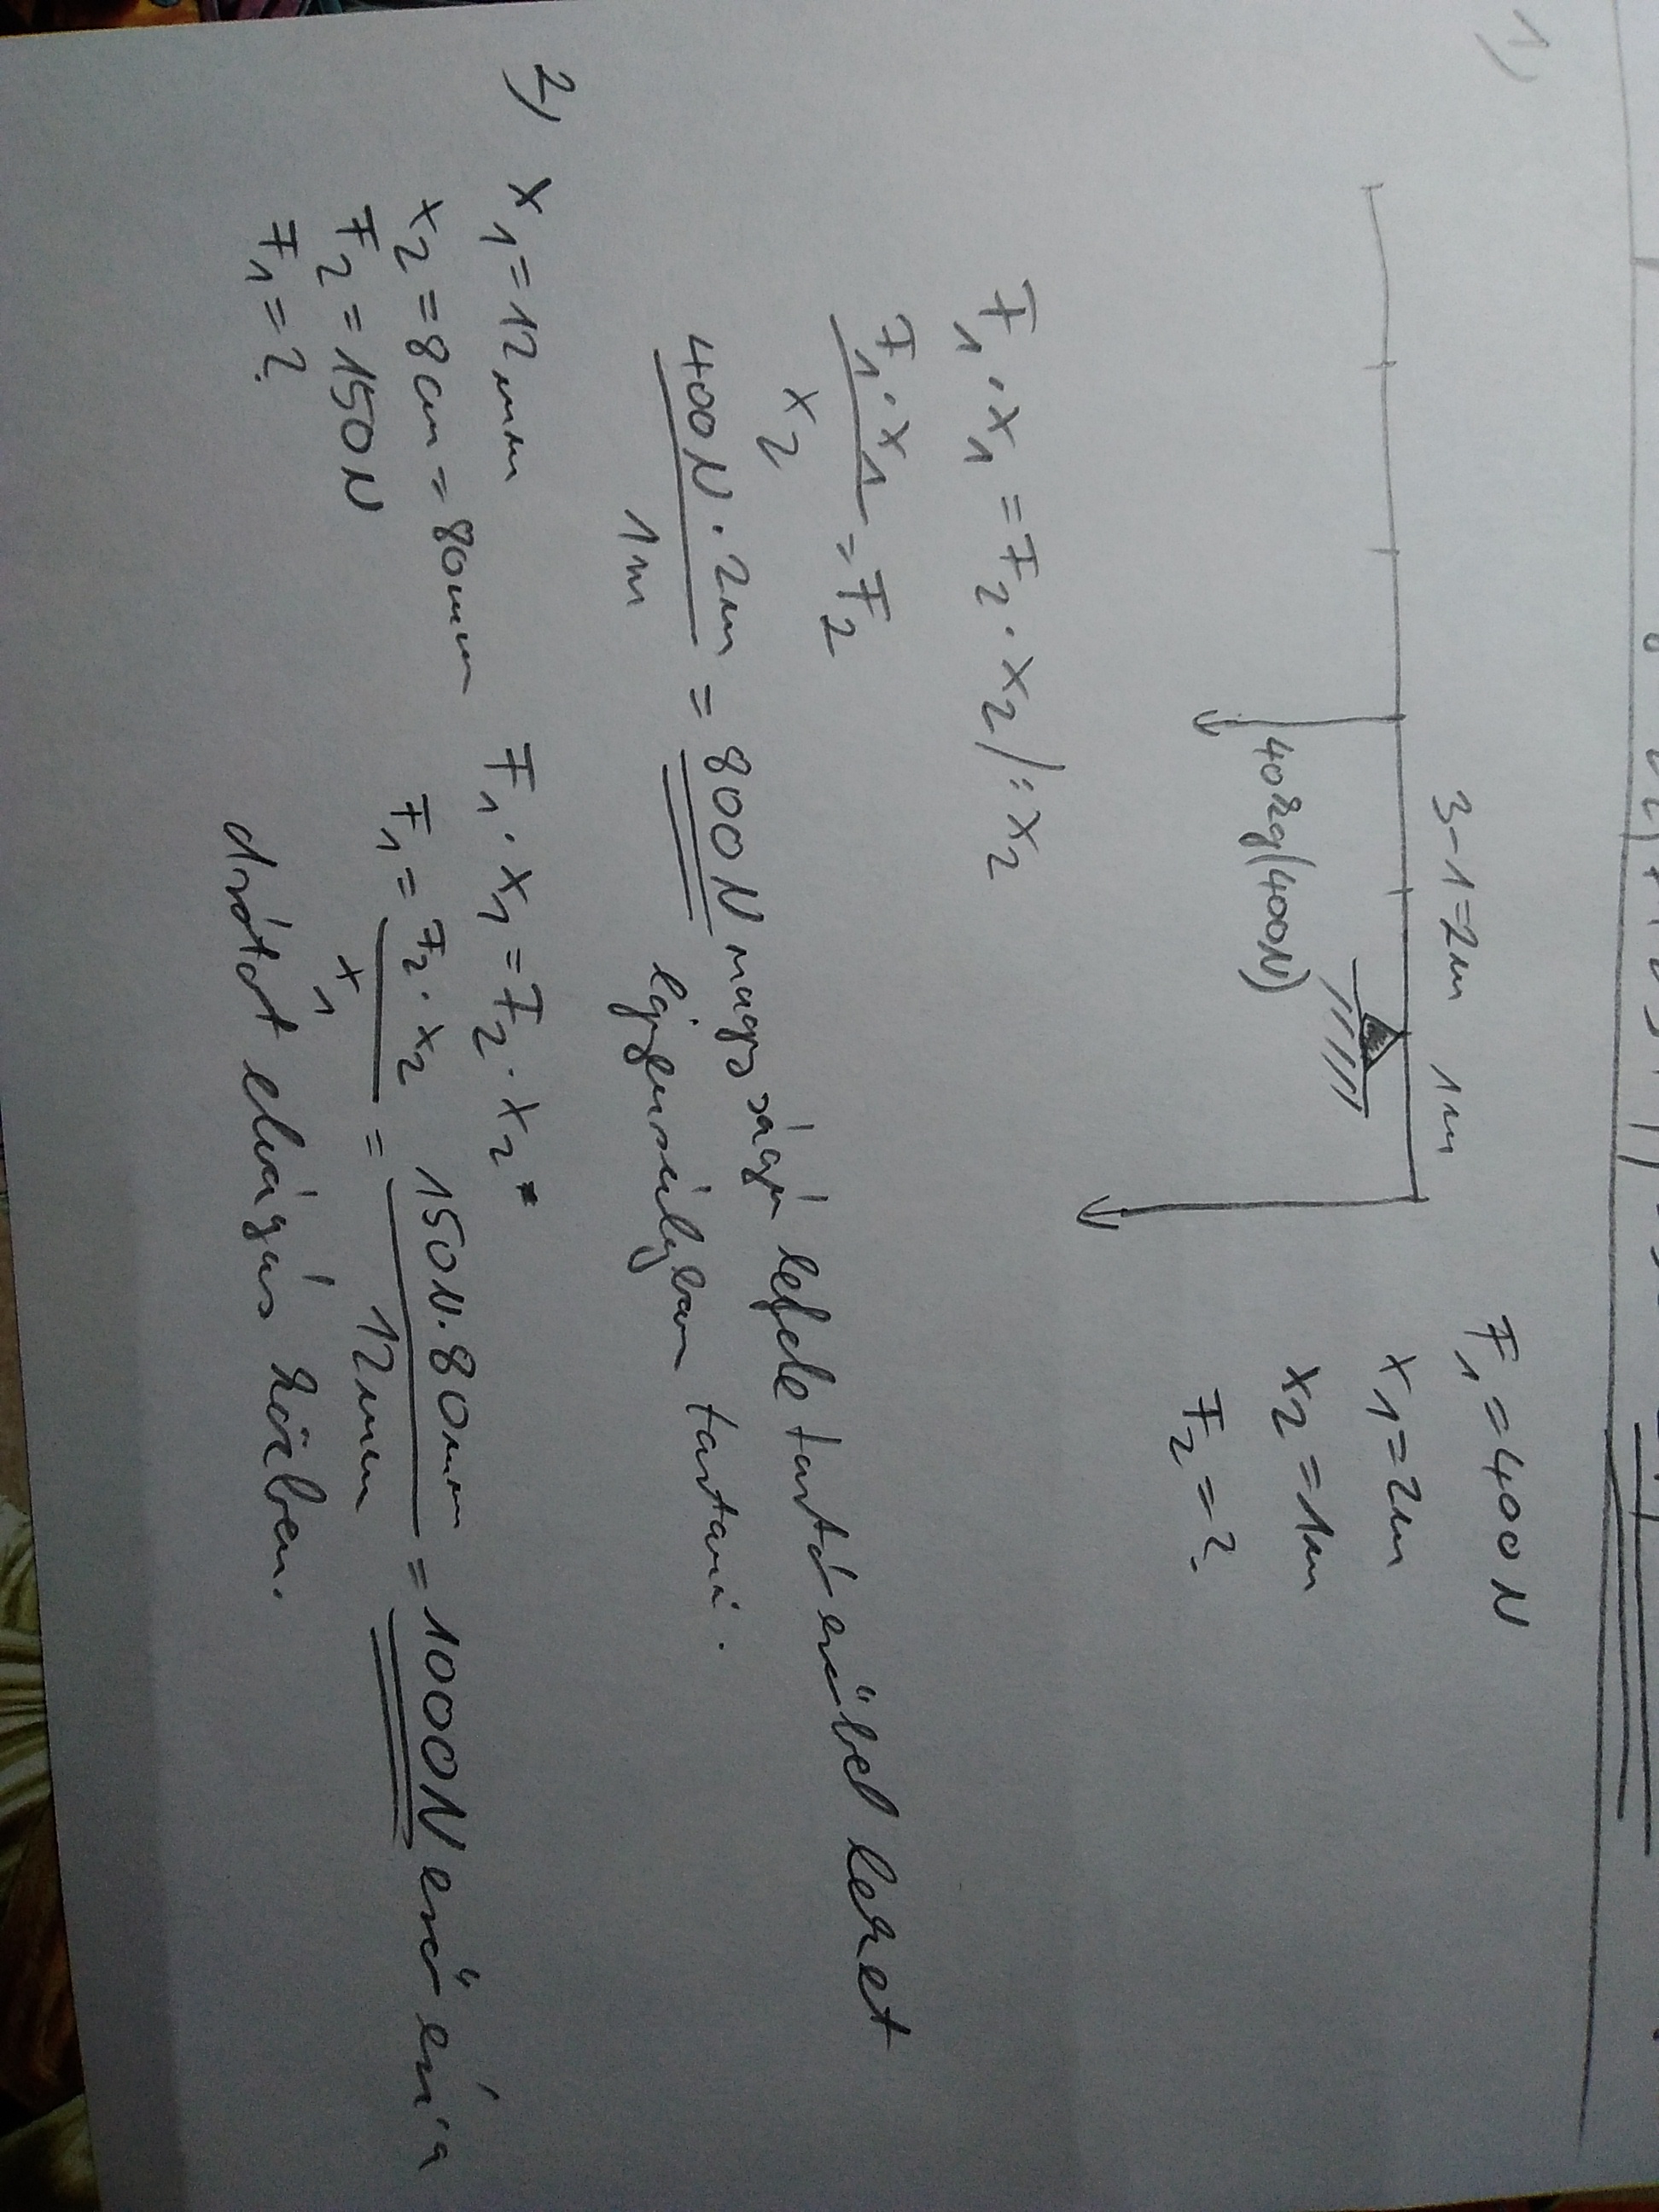 1)
3-1=2m 1m
40kg(400N)
F1=400N
x1=2m
x2=1m
F2=?
F1·x1=F2·x2/:x2
F1·x1
x2
=F2
400N·2m
1m
=800N nagyságú lefele tartó erővel lehet
egyensúlyban tartani.
2) x1=12mm
x2=8cm=80mm
F2=150N
F1=?
F1·x1=F2·x2
F1=F2·x2
x1
=
150N·80mm
12mm
=1000N erő éri a
drótot elvágás közben.